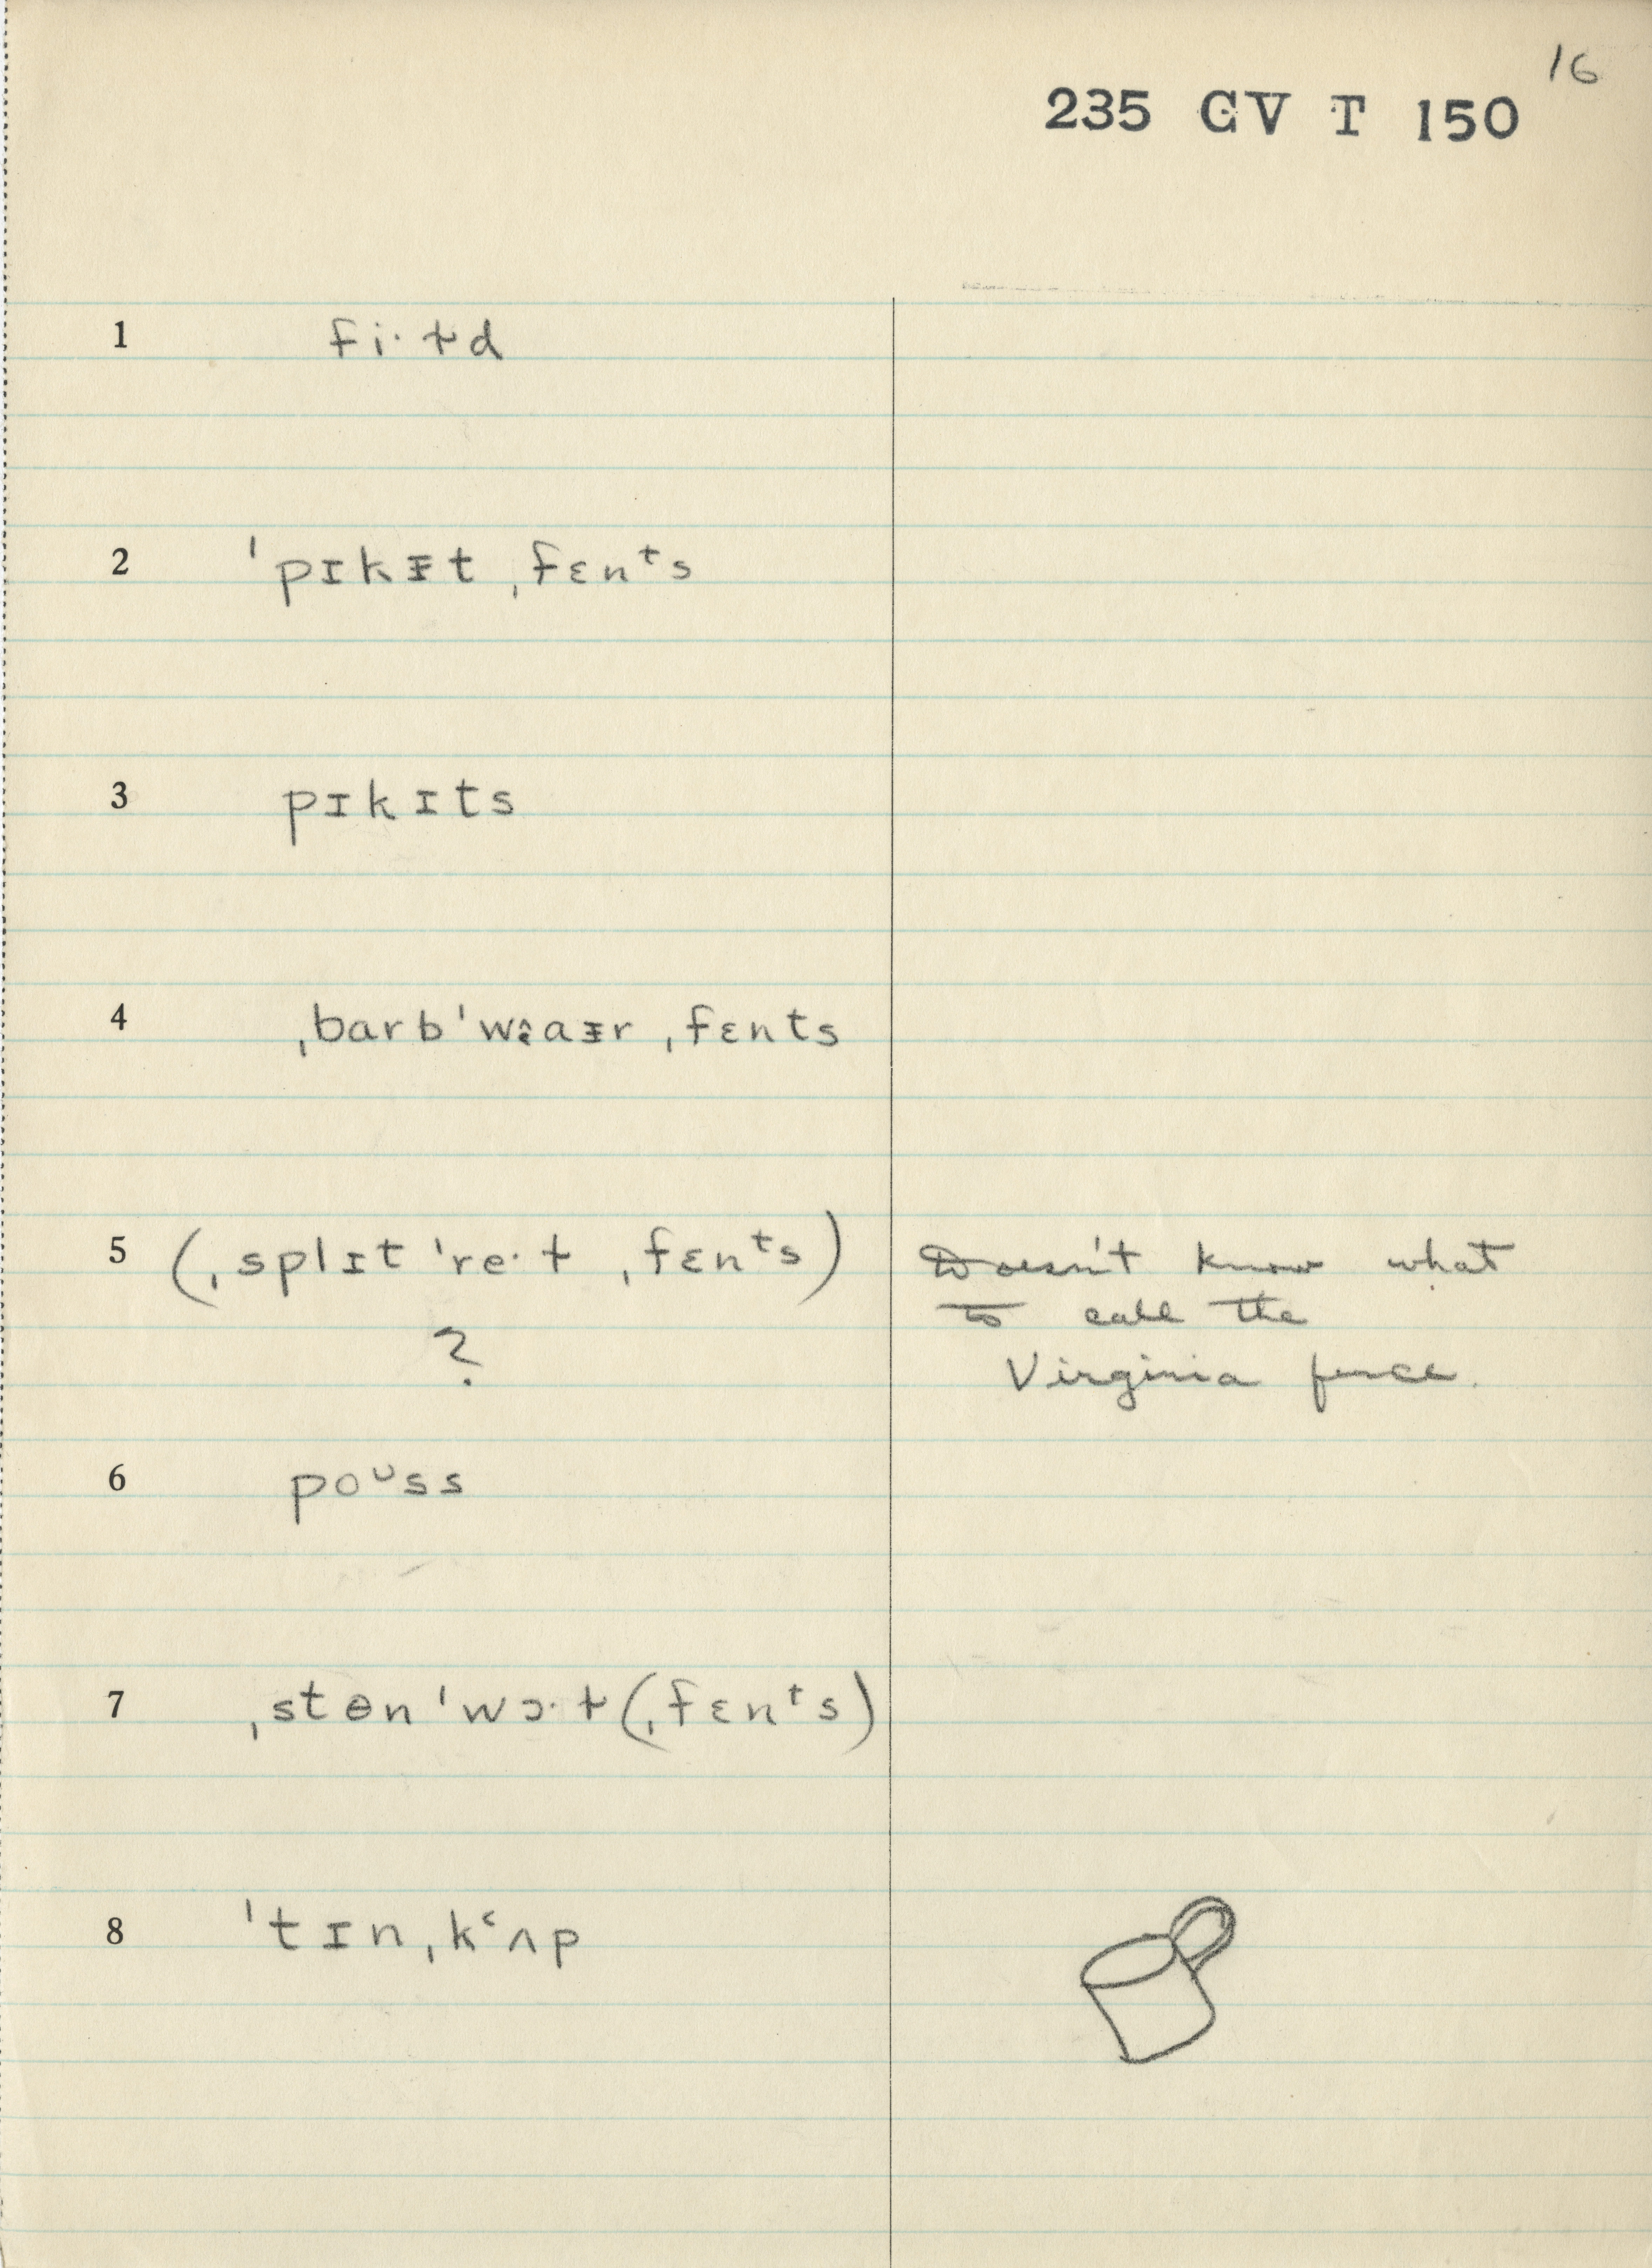 16
235 GV T 150
1 fi·ɫd
2 ˈpɪkɪ̵t ˌfɛnᵗs
3 pɪkɪts
4 ˌbarbˈwɐ̯aɪ̵r ˌfɛnts
5 (ˌsplɪtˈre·ɫ ˌfɛnᵗs) Doesn't know what
? to call the
Virginia fence.
6 poᶸss
7 ˌstɵnˈwɔ·ɫ (ˌfɛnᵗs)
8 ˈtɪnˌkʻʌp